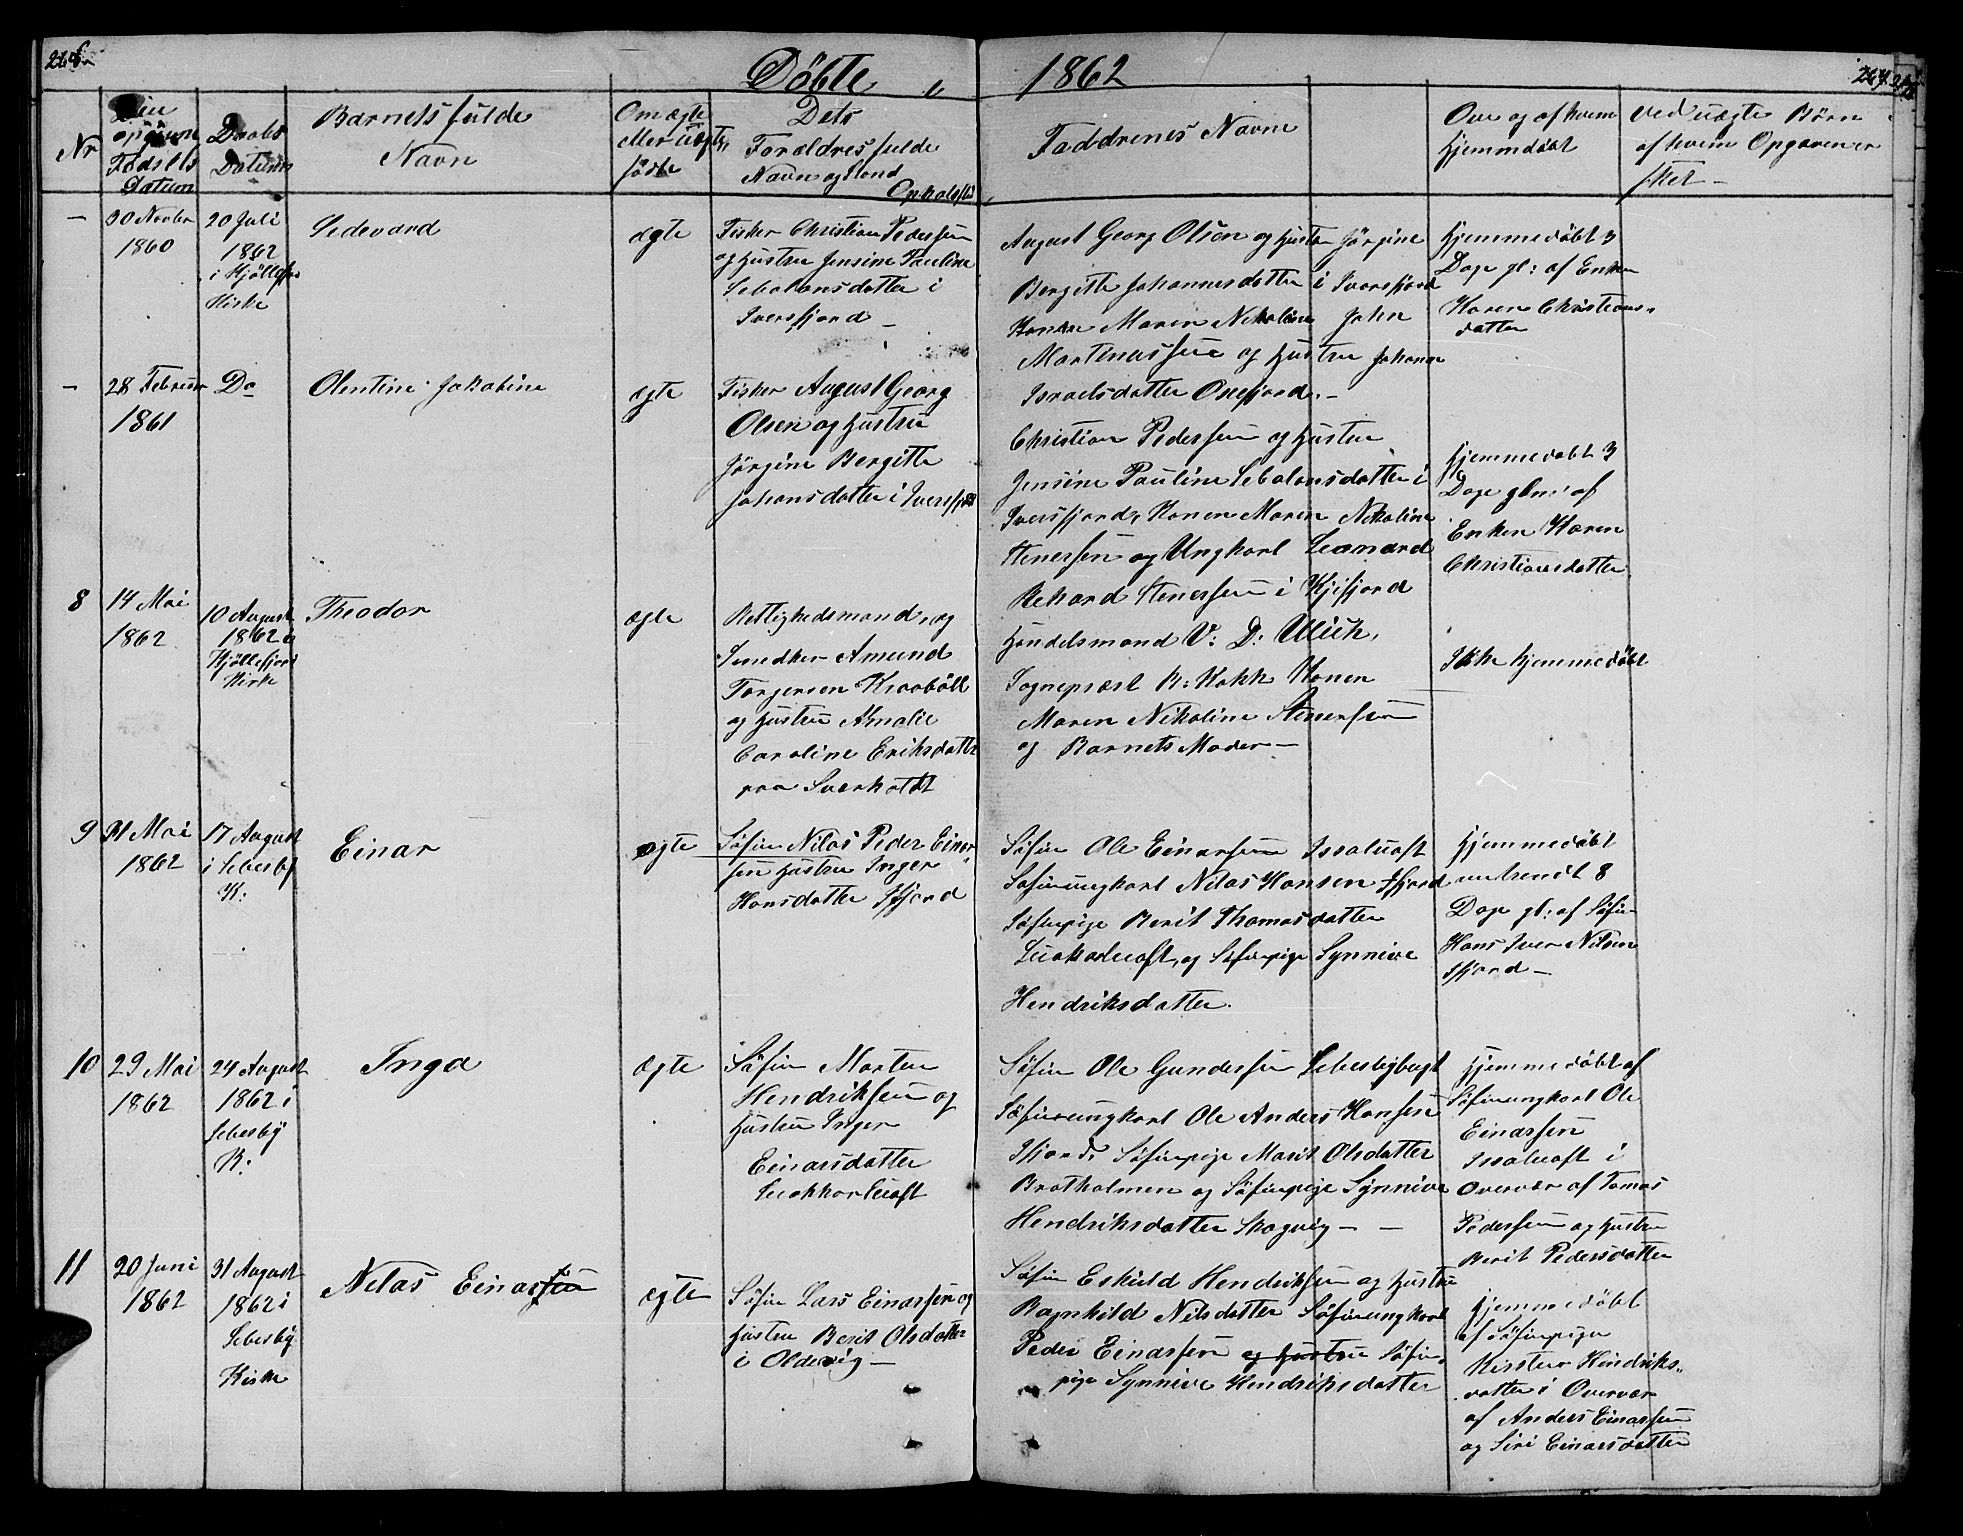 Döbte 1862
Nr
Den opgivne Fødsels Datum
Daabs Datum
Barnets fulde Navn
Om ægte eller uægte födte
Dets Forældres fulde Navn og Stand Opholdssted
Faddrenes Navne
Ove og af hvem hjemmdöbt
Ved uægte Börn af hvem Opgaven er sket
–
30 Novbr
1860
20 Juli
1862
i Kjöllefj
Kirke
Sedevard
ægte
Fisker Christian Pedersen
og Hustru Jensine Pauline
Sebalonsdatter i
Iversfjord –
August Georg Olsen og Hustru Jörgine
Bergitte Johannesdatter i Iversfjord
Konen Maren Nikoline John
Martinussen og Hustru Johanna
Israelsdatter Oxefjord. –
Hjemmedöbt 3
Dage gl: af Enken
Karen Christians-
datter
–
28 Februar
1861
Do
Olentine Jakobine
ægte
Fisker August Georg
Olsen og Hustru
Jörgine Bergitte
Johansdatter i Iversfjord
Christian Pedersen og Hustru
Jensine Pauline Sebalonsdatter i
Iversfjord, Konen Maren Nikoline
Stenersen og Ungkarl Leonard
Rikard Stenersen i Kjifjord
Hjemmedöbt 3
Dage glm: af
Enken Karen
Christiansdatter
8
14 Mai
1862
10 August
1862 i
Kjöllefjord
Kirke
Theodor
ægte
Rettighedsmand, og
Snedker Amund
Torgersen Kroaböll
og Hustru Amalie
Caroline Eriksdatter
paa Sværholdt
Handelsmand V: D: Ulich,
Sognepræst B: Kokk Konen
Maren Nikoline Stenersen
og Barnets Moder –
Ikke hjemmedöbt
9
31 Mai
1862
17 August
i Lebesby
K:
Einar
ægte
Söfin Nilas Peder Einar
sen Hustru Inger
Hansdatter Ifjord
Söfin Ole Einarsen Issaluoft
Söfinungkarl Nilas Hansen Ifjord
Söfinpige Berit Thomasdatter
Luokarluoft, og Söfinpige Synnive
Hendriksdatter.
Hjemmedöbt
omtrendt 8
Dage gl: af Söfin
Hans Iver Nilsen
Ifjord –
10
29 Mai
1862
24 August
1862 i
Lebesby
K:
Inga
ægte
Söfin Morten
Hendriksen og
Hustru Inger
Einarsdatter
Luokkarluoft
Söfin Ole Gundersen Lebesbybugt
Söfinungkarl Ole Anders Hansen
Ifjord, Söfinpige Marit Olsdatter
Bratholmen og Söfinpige Synnive
Hendriksdatter Skogvig – –
Hjemmedöbt af
Söfinungkarl Ole
Einarsen
Issaluoft i
Overvær af Tomas
Pedersen og Hustru
Berit Pedersdatter
11
20 Juni
1862
31 August
1862 i
Lebesby
Kirke
Nilas Einarsen
ægte
Söfin Lars Einarsen og
Hustru Berit Olsdatter
i Oldervig –
Söfin Eskild Hendriksen og Hustru
Ragnhild Nilsdatter Söfinungkarl
Peder Einarsen og Hustru Söfin-
pige Synnive Hendriksdatter
Hjemmedöbt
af Söfinpigen
Kirsten Hindriks-
datter i Overvær
af Anders Einarsen
og Siri Einarsdatter